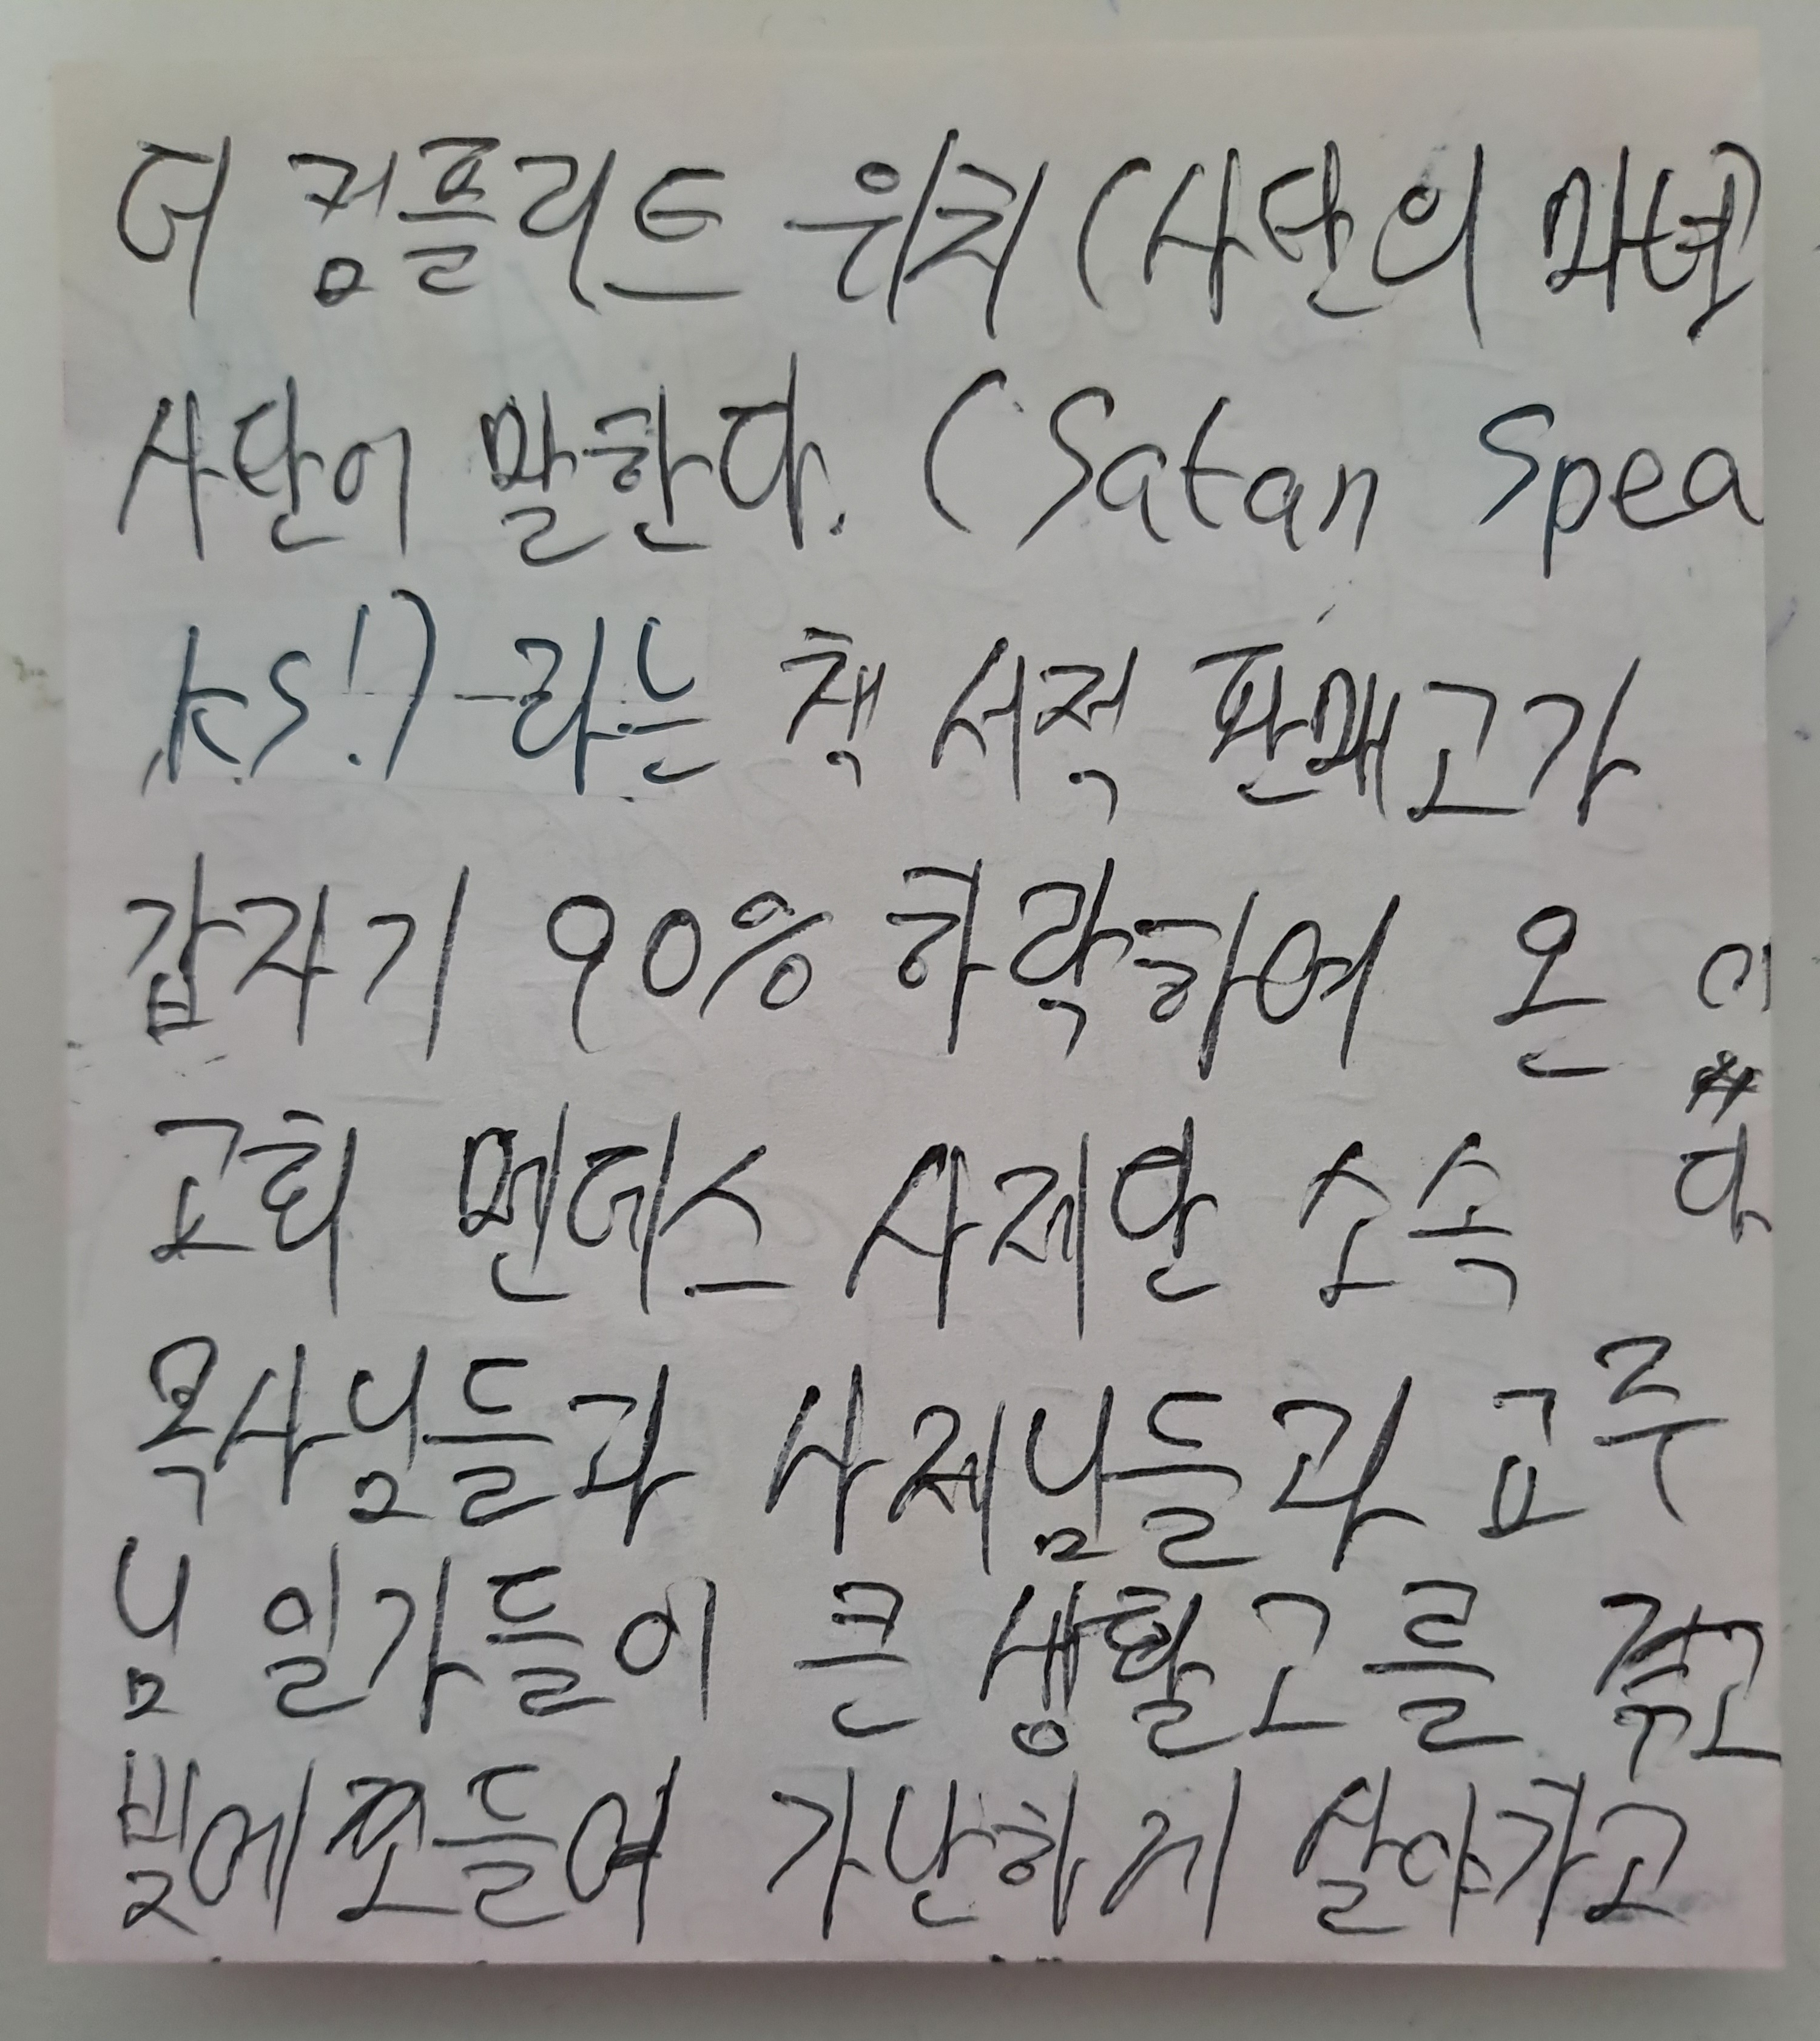 더 컴플리트 위치 (사단의 마녀)
사단이 말한다. (Satan Spea
ks!)-라는 책 서적 판매고가
갑자기 90% 하락하여 온
교회 멘데스 사제단 소속
목사님들과 사제님들과 교주
님 일가들이 큰 생활고를 겪고
빚에 쪼들여 가난하게 살아가고
있
다